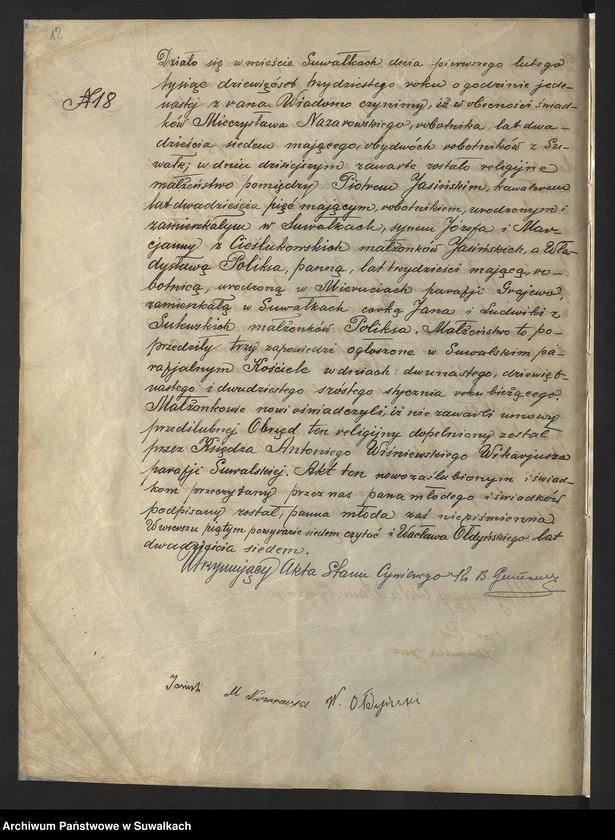 12
№18
Działo się w mieście Suwałkach dnia pierwszego lutego
tysiąc dziewięćset trzydziestego roku o godzinie jede-
nastej z rana. Wiadomo czynimy, iż w obecności świad-
ków Mieczysława Nazarowskiego, robotnika, lat dwa-
dzieścia siedem mającego, obydwóch robotników z Su-
wałk; w dniu dzisiejszym zawarte zostało religijne
małżeństwo pomiędzy Piotrem Jasińskim, kawalerem
lat dwadzieścia pięć mającym, robotnikiem, urodzonym i
zamieszkałym w Suwałkach, synem Józefa i Mar-
cjanny z Cieślukowskich małżonków Jasińskich, a Wła-
dysławą Poliksa, panną, lat trzydzieści mającą, ro-
botnicą, urodzoną w Mieruciach parafji Grajewo,
zamieszkałą w Suwałkach córką Jana i Ludwiki z
małżonków Poliksa. Małżeństwo to po-
przedziły trzy zapowiedzi ogłoszone w Suwalskim pa-
rafjalnym Kościele w dniach: dwunastego, dziewięt-
nastego i dwudziestego szóstego stycznia roku bieżącego.
Małżonkowie nowi oświadczyli, iż nie zawarli umowy
przedślubnej Obrzęd ten religijny dopełniony został
przez Księdza Antoniego Wiśniewskiego Wikarjusza
parafji Suwalskiej. Akt ten nowozaślubionym i świad-
kom przeczytany przez nas pana młodego i świadków
podpisany został, panna młoda zaś niepiśmienna
W wierszu piątym po wyrazie siedem czytać i Wacława Ołdyńskiego lat
dwadzieścia siedem.
Utrzymujący Akta Stanu Cywilnego Ks. B.
Jasiński M Nazarowski W. Ołdyński
Archiwum Państwowe w Suwałkach